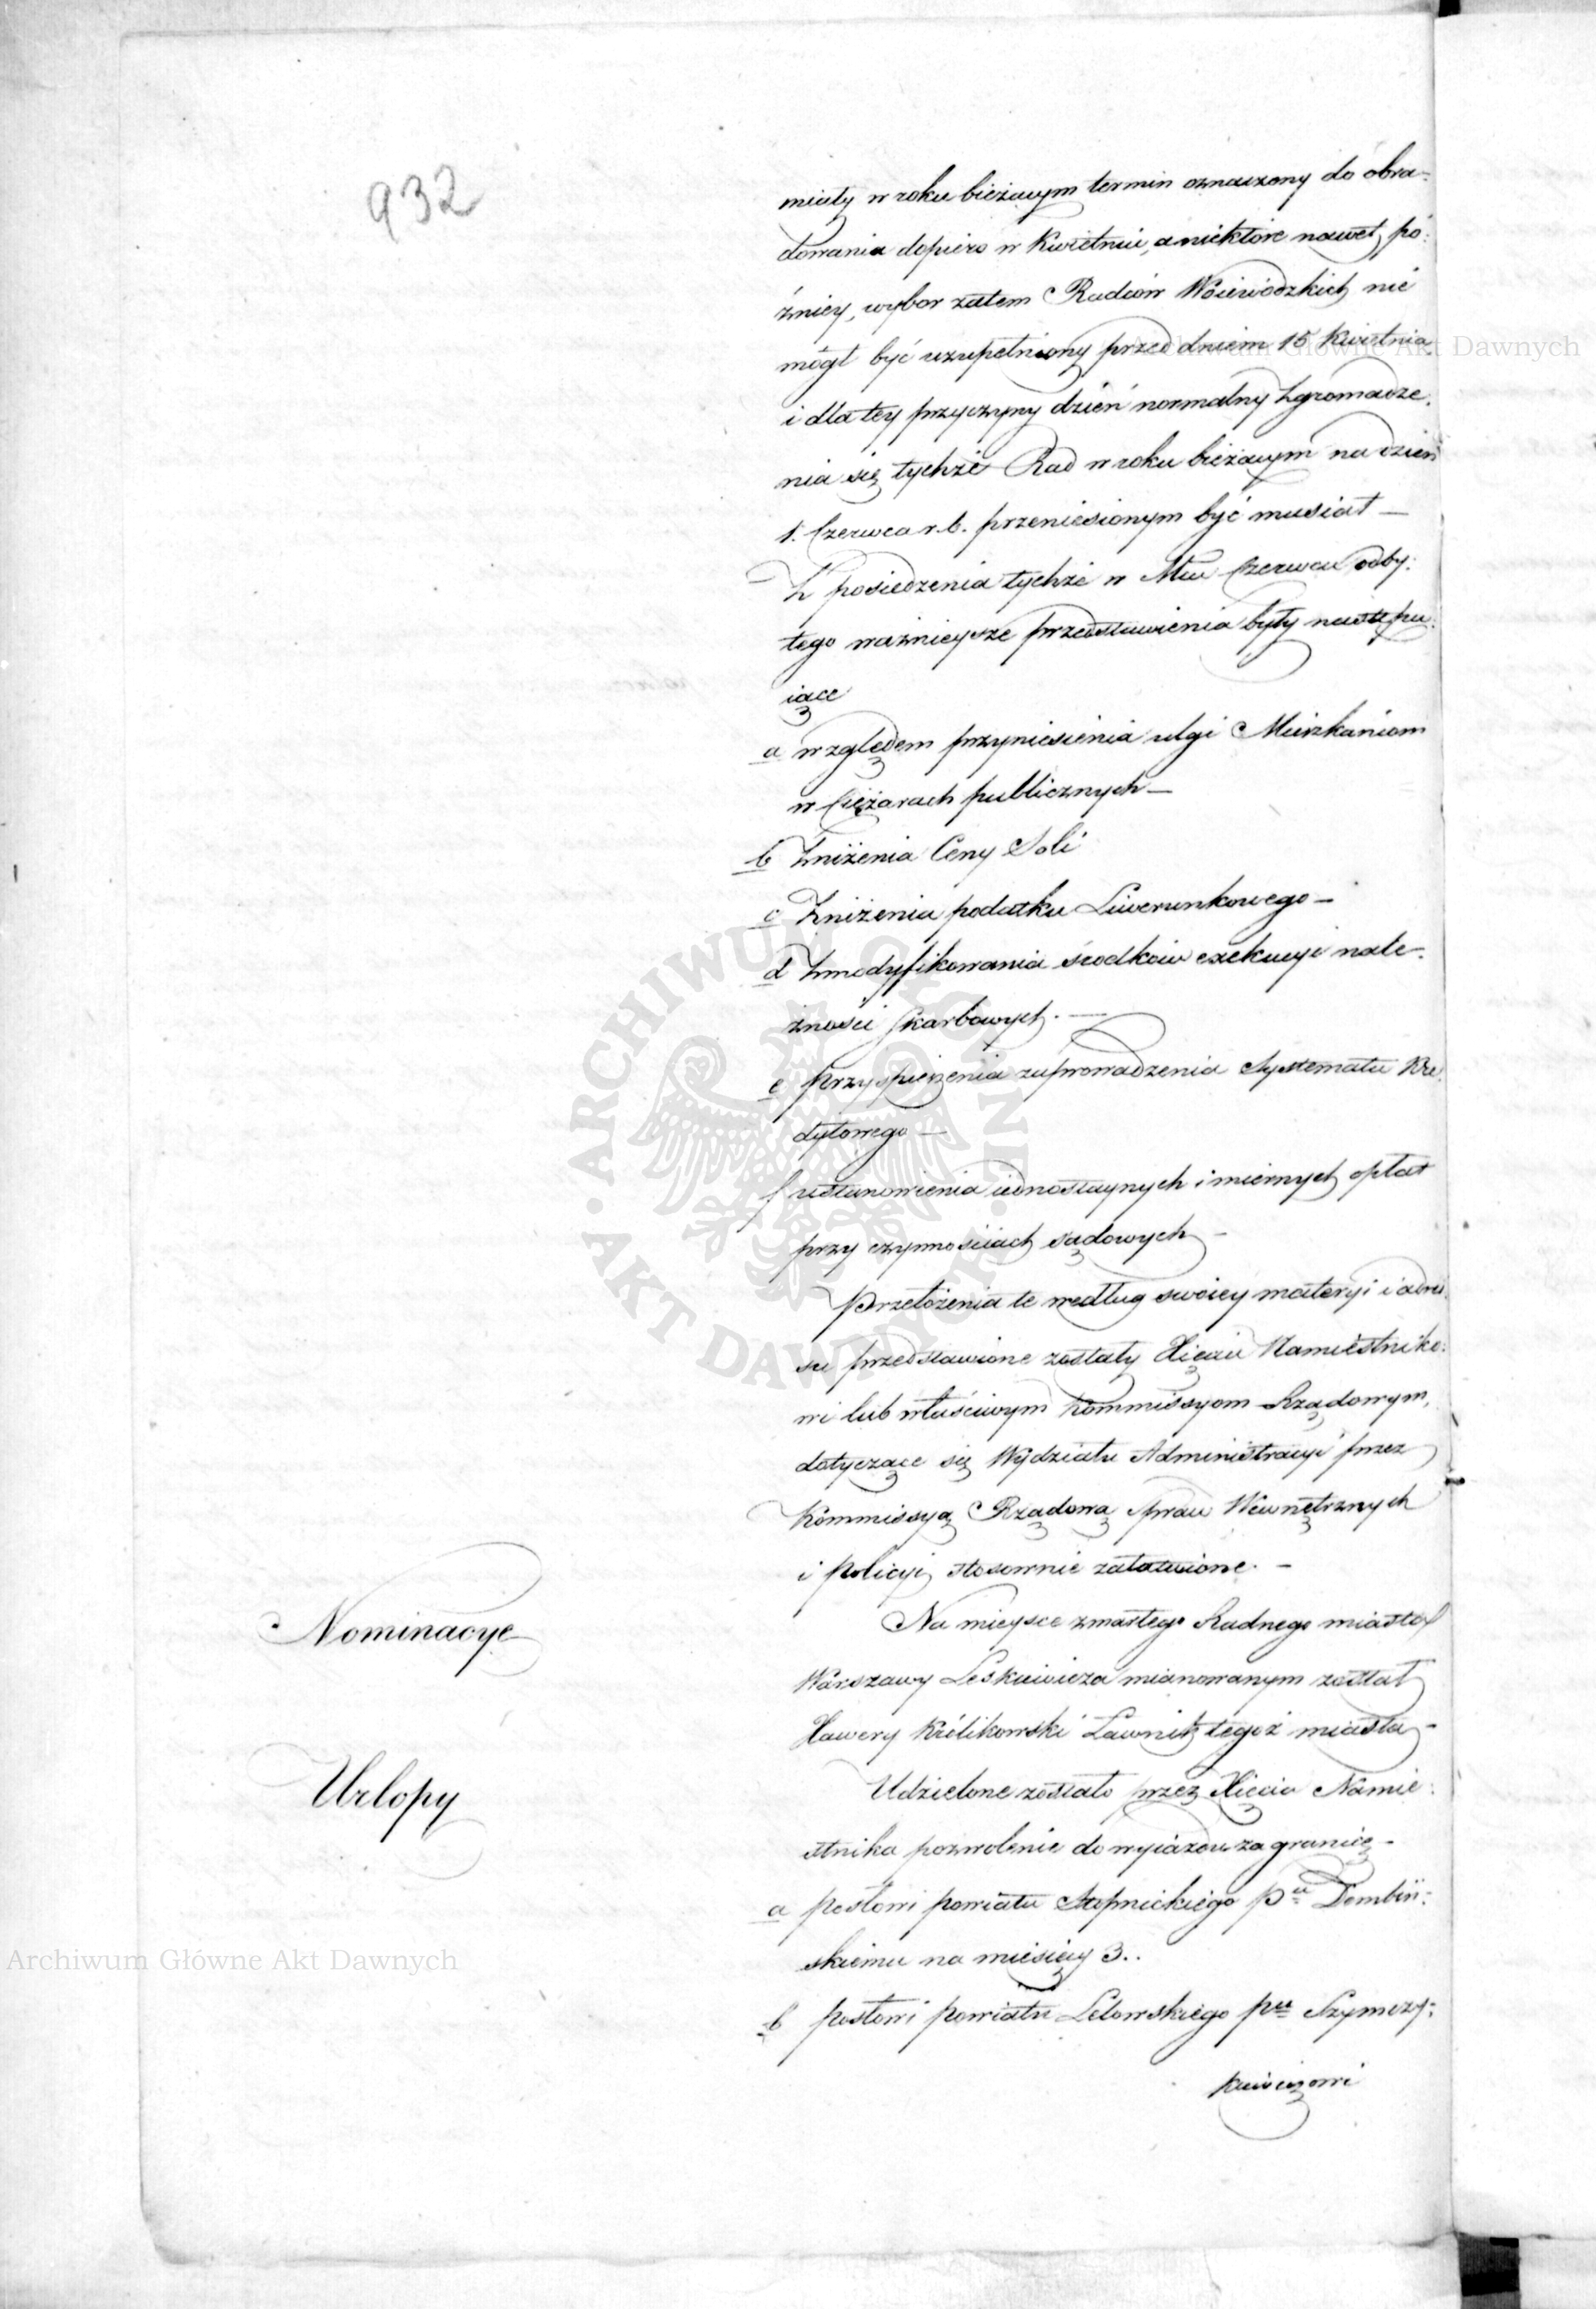 932
miały w roku bieżącym termin oznaczony do obra-
dowania dopiero w Kwietniu, a niektóre nawet pó-
źniey, wybor zatem Radców Woiewódzkich nie
mógł być uzupełniony przed dniem 15 Kwietnia
i dla tey przyczyny dzień normalny Zgromadze-
nia się tychże Rad w roku bieżącym na dzień
1. Czerwca r. b. przeniesionym być musiał —
Z posiedzenia tychże w Mcu Czerwcu odby-
tego ważnieysze przedstawienia były nastepu-
iące
a względem przyniesienia ulgi Mieszkańcom
w Ciężarach publicznych —
b Zniżenia Ceny Soli
c Zniżenia podatku Liwerunkowego —
d Zmodyfikowania środków exekucyi nale-
żności skarbowych. —
e Przyspieszenia zaprowadzenia Systematu Kre-
dytowego —
f ustanowienia iednostaynych i miernych opłat
przy czynnościach sądowych —
Przełożenia te według swoiey materyi i adres-
su przedstawione zostały Xięciu Namiestniko-
wi lub właściwym Kommissyom Rządowym,
dotyczące się Wydziału Administracyi przez
Kommissyą Rządową Spraw Wewnętrznych
i Policyi, stosownie załatwione. —
Nominacye
Na mieysce zmarłego Radnego miasta
Warszawy Leskiewicza mianowanym został
Xawery Królikowski Ławnik tegoż miasta —
Urlopy
Udzielone zostało przez Xięcia Namie-
stnika pozwolenie do wyiazdu za granicę —
a posłowi powiatu Stopnickiego Pu Dembiń-
skiemu na miesięcy 3..
b posłowi powiatu Lelowskiego pu Szymczy-
kiewiczowi
Archiwum Główne Akt Dawnych
Archiwum Główne Akt Dawnych
ARCHIWUM GŁÓWNE · AKT DAWNYCH ·